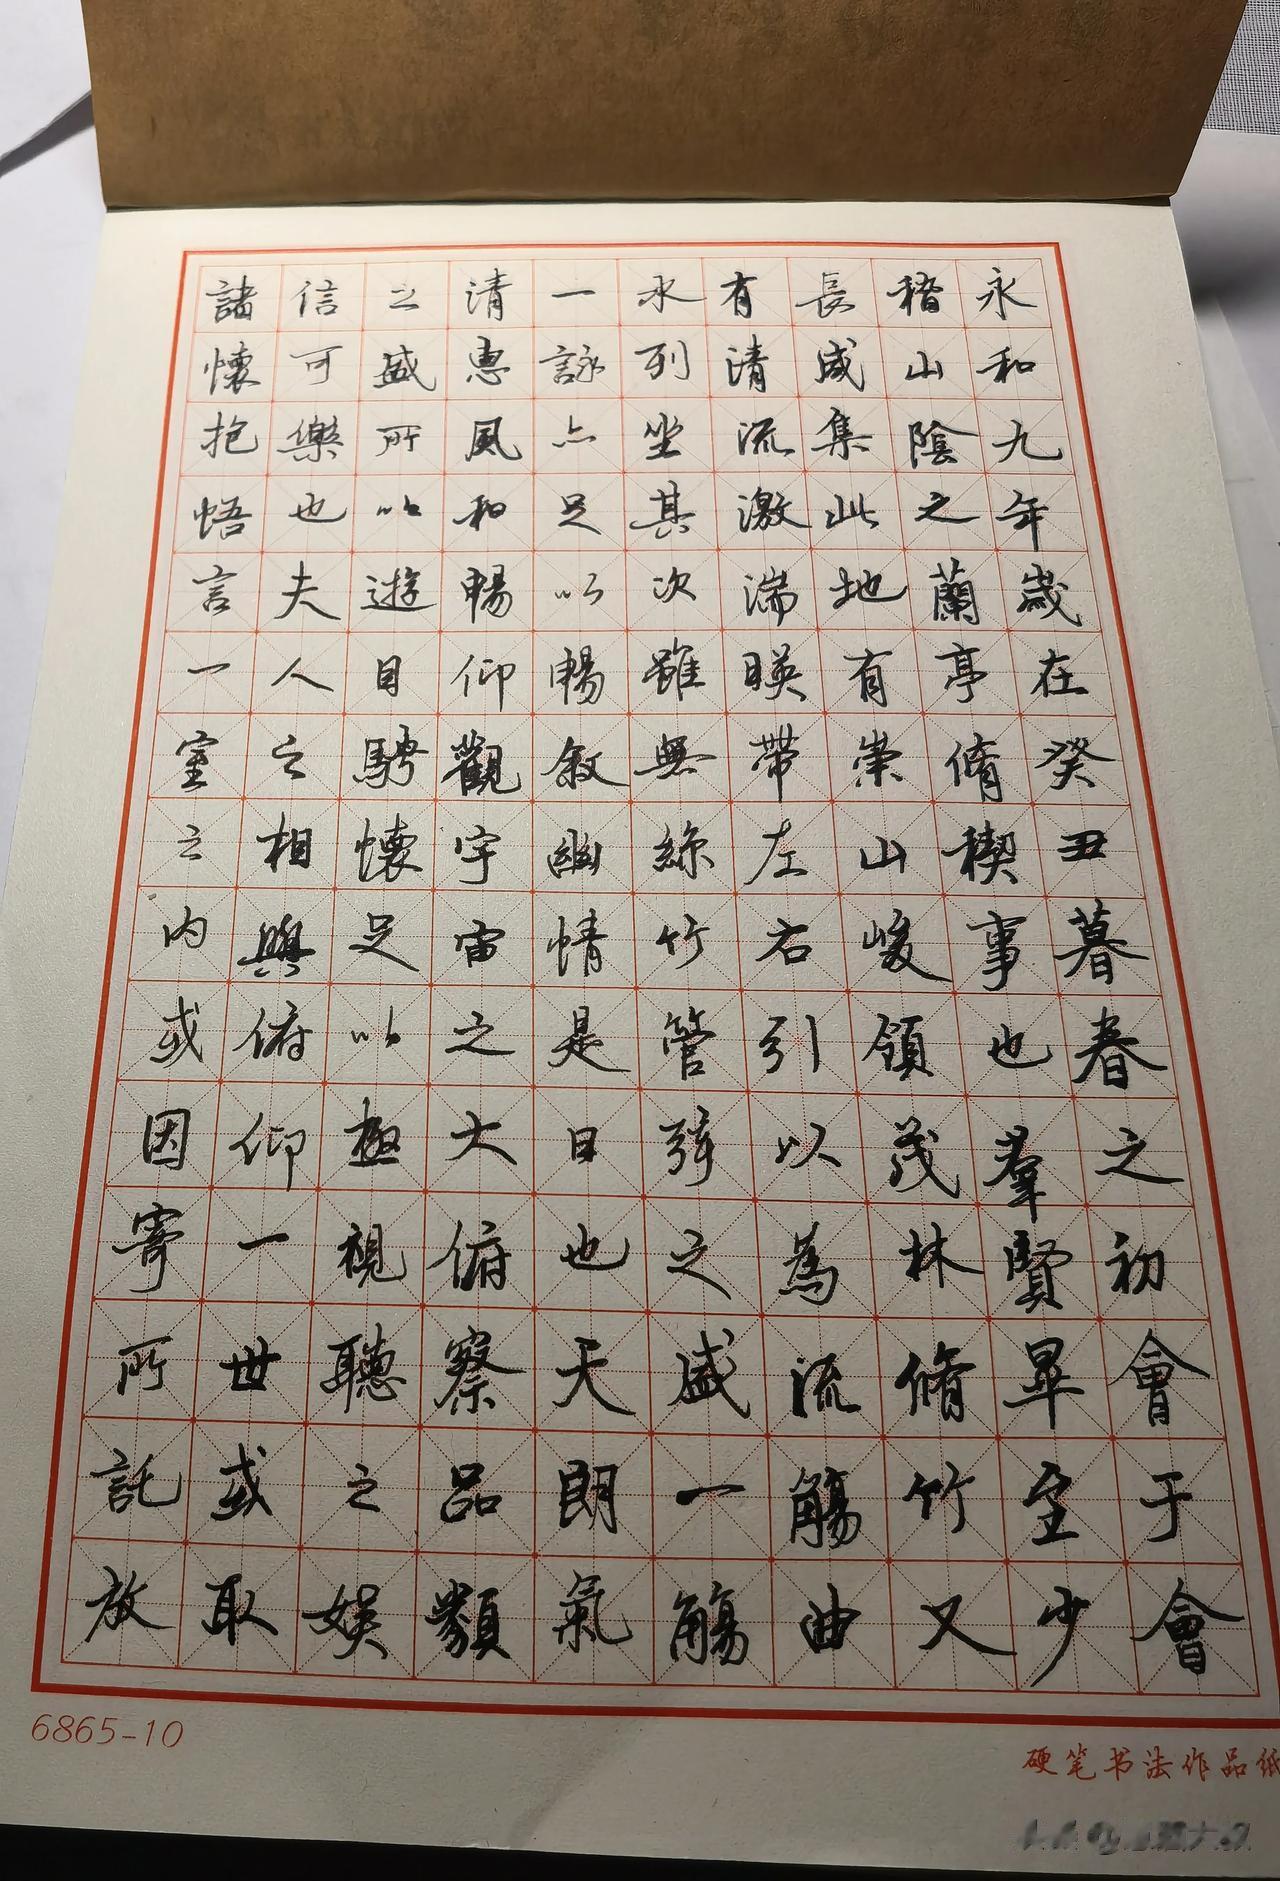 永和九年歲在癸丑暮春之初會于會
稽山陰之蘭亭脩稧事也羣賢畢至少
長咸集此地有崇山峻領茂林脩竹又
有清流激湍暎帶左右引以為流觴曲
水列坐其次雖無絲竹管弦之盛一觴
一詠亦足以暢敘幽情是日也天朗氣
清惠風和暢仰觀宇宙之大俯察品類
之盛所以遊目騁懷足以極視聽之娛
信可樂也夫人之相與俯仰一世或取
諸懷抱悟言一室之內或因寄所託放
6865-10
硬笔书法作品纸